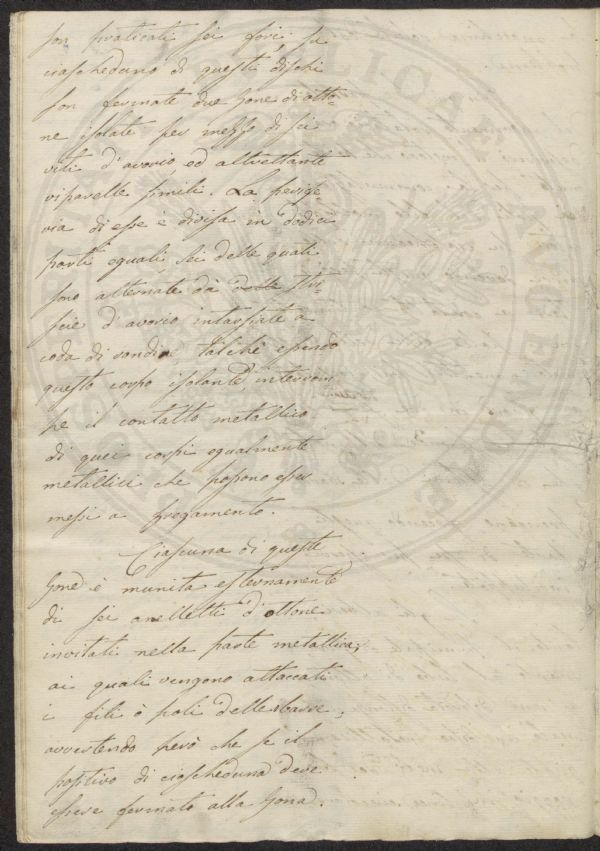 son praticati sei fori, su
ciascheduno di questi dischi
son fermate due zone di otto-
ne isolate per mezzo di sei
viti d'avorio, ed altrettante
viparelle simili. La perife-
ria di esse è divisa in dodici
parti eguali, sei delle quali
sono alternate da delle stri-
scie d'avorio intarsiate a
coda di rondine talchè essendo
questo corpo isolante interrom-
pe il contatto metallico
di quei corpi egualmente
metallici che possono esser
messi a fregamento.
Ciascuna di queste
zone è munita esternamente
di sei anelletti d'ottone
invitati nella parte metallica;
ai quali vengono attaccati
i fili ò poli delle barre,
avvertendo però che se il
positivo di ciascheduna deve
essere fermato alla zona.